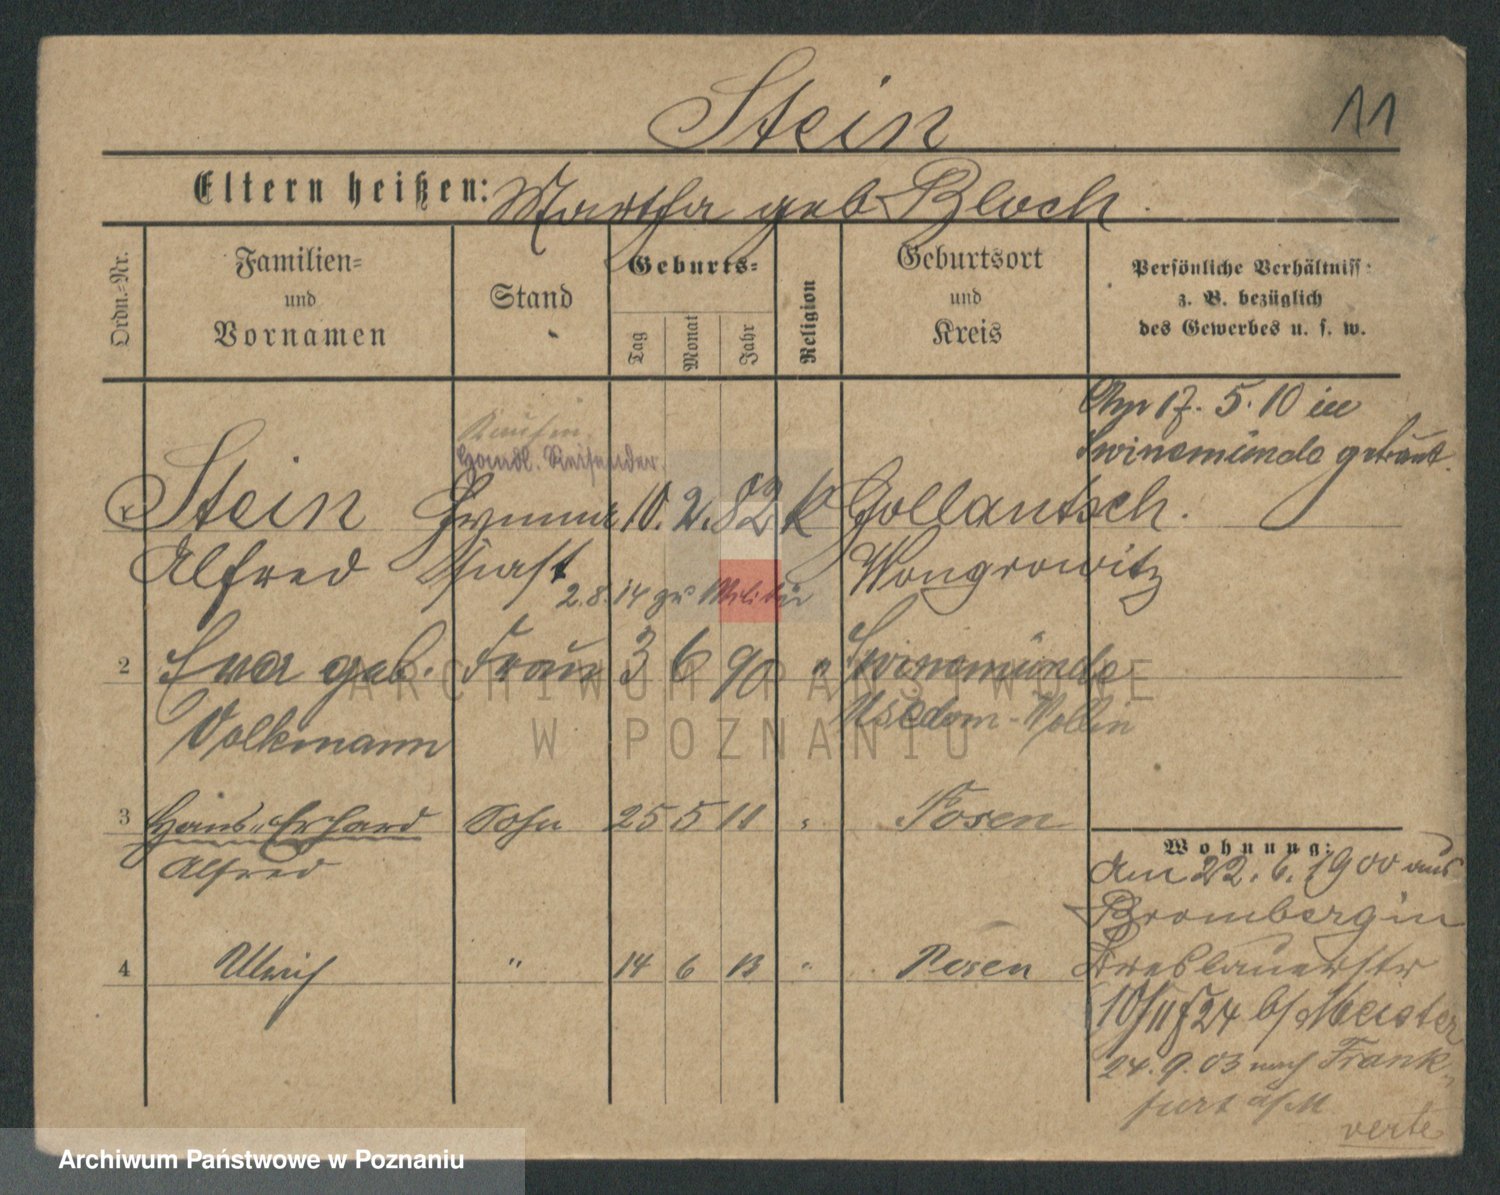 Stein
11
Eltern heißen: Martha geb Bloch.
Ordn.-Nr.
Familien-
und
Vornamen
Stand
Geburts-
Tag
Monat
Jahr
Religion
Geburtsort
und
Kreis
Persönliche Verhältniss-
z. B. bezüglich
des Gewerbes u. s. w.
Am 17. 5. 10 in
Swinemünde getraut.
Handl. Reisender.
Stein 10. 2. 82 k Gollantsch.
Alfred Wongrowitz
2. 8. 14 zu Militär
2 Eva geb. Frau 3 6 90 " Swinemünde
Volkmann Usedom-Wollin
3 Hans Erhard Sohn 25 5 11 Posen
Alfred
4 Ulrich " 14 6 13 " Posen
Wohnung:
Am 22. 6. 1900 aus
Bromberg in
Breslauerstr
24 b/ Meister
24. 9. 03 nach Frank-
furt a/M
verte
ARCHIWUM PAŃSTWOWE
W POZNANIU
Archiwum Państwowe w Poznaniu